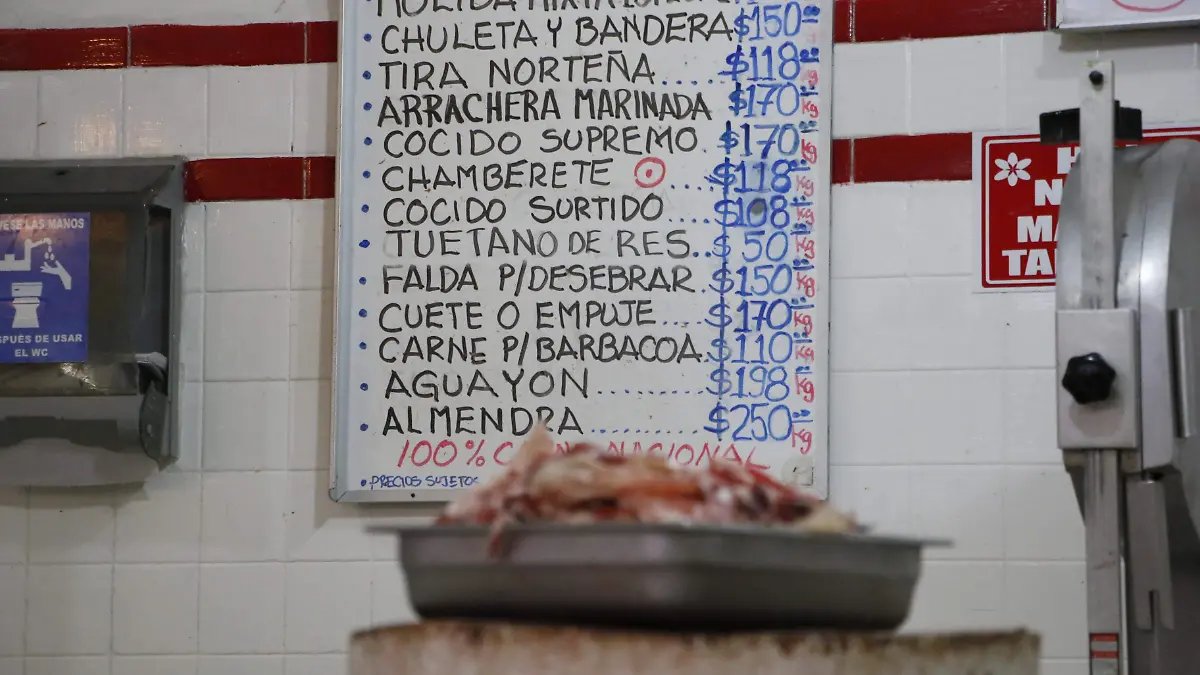 MOLIDA MIXTA
• CHULETA Y BANDERA $150.00
• TIRA NORTEÑA..... $118.00 Kg
• ARRACHERA MARINADA $170.00 Kg
• COCIDO SUPREMO. $170.00 Kg
• CHAMBERETE .... $118.00 Kg
• COCIDO SURTIDO.... $108.00 Kg
• TUETANO DE RES.. $50.00 Kg
• FALDA P/DESEBRAR. $150.00 Kg
• CUETE O EMPUJE.... $170.00 Kg
• CARNE P/BARBACOA. $110.00 Kg
• AGUAYON ........ $198.00 Kg
• ALMENDRA ........ $250.00 Kg
100% NACIONAL
• PRECIOS SUJETOS
VESE LAS MANOS
SPUÉS DE USAR
EL WC
H
N
MA
TA